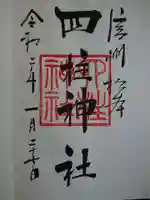 信州 松本
四柱神社
令和二年 一月二十日